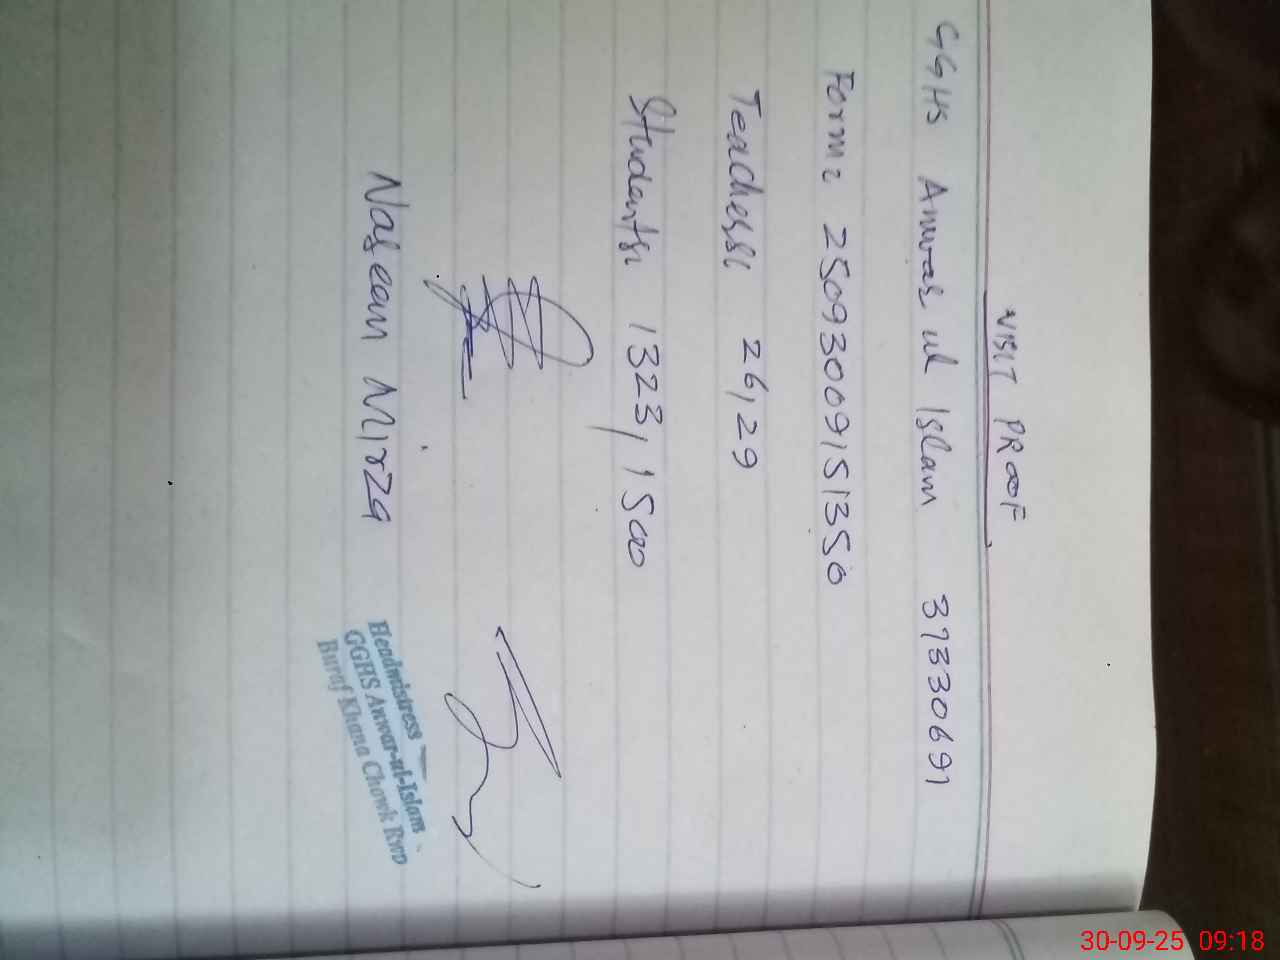 VISIT PROOF
GGHS Anwar ul Islam 37330691
Form: 25093009151350
Teachers: 26, 29
Students: 1323, 1500
Naseem Mirza
Headmistress
GGHS Anwar-ul-Islam
Buraf Khana Chowk Rwp
30-09-25 09:18